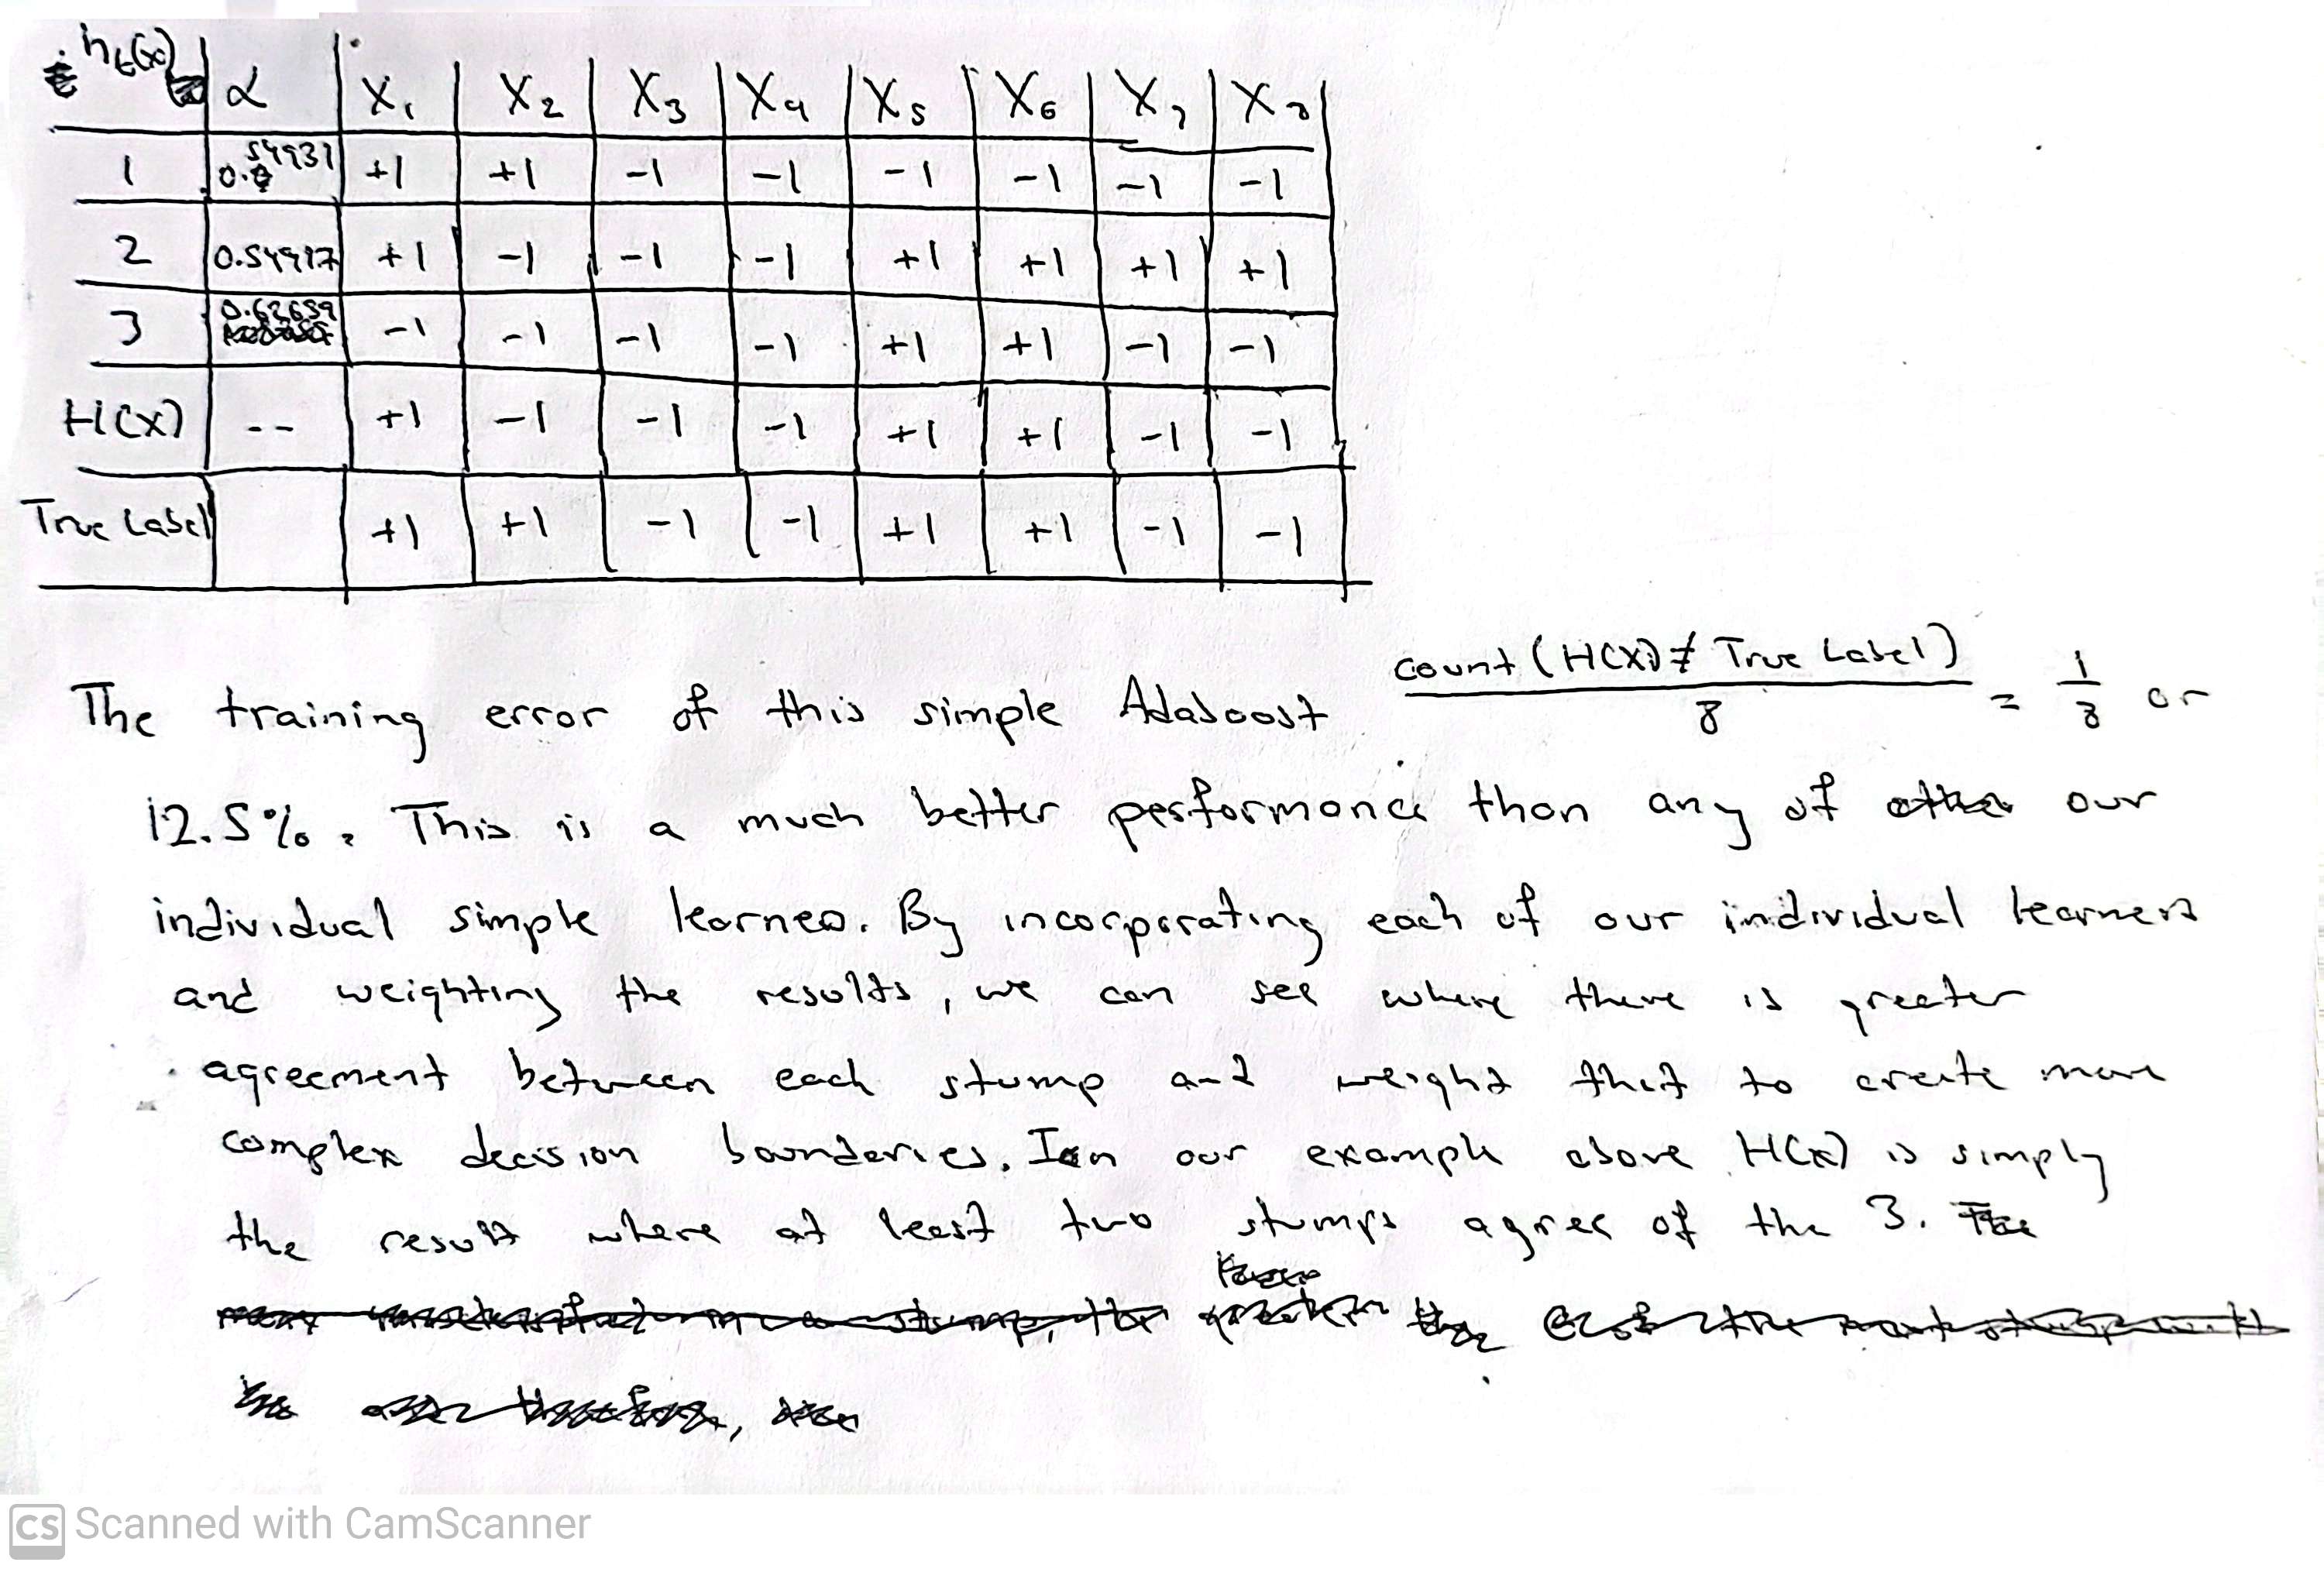 h_t(x) | α | X₁ | X₂ | X₃ | X₄ | X₅ | X₆ | X₇ | X₈
1 | 0.54931 | +1 | +1 | -1 | -1 | -1 | -1 | -1 | -1
2 | 0.54917 | +1 | -1 | -1 | -1 | +1 | +1 | +1 | +1
3 | 0.62659 | -1 | -1 | -1 | -1 | +1 | +1 | -1 | -1
H(X) | -- | +1 | -1 | -1 | -1 | +1 | +1 | -1 | -1
True Label | +1 | +1 | -1 | -1 | +1 | +1 | -1 | -1
The training error of this simple Adaboost count (H(X) ≠ True Label) / 8 = 1/8 or
12.5%. This is a much better performance than any of our
individual simple learners. By incorporating each of our individual learners
and weighting the results, we can see where there is greater
agreement between each stump and weight that to create more
complex decision boundaries. In our example above H(x) is simply
the result where at least two stumps agree of the 3. The
CS Scanned with CamScanner